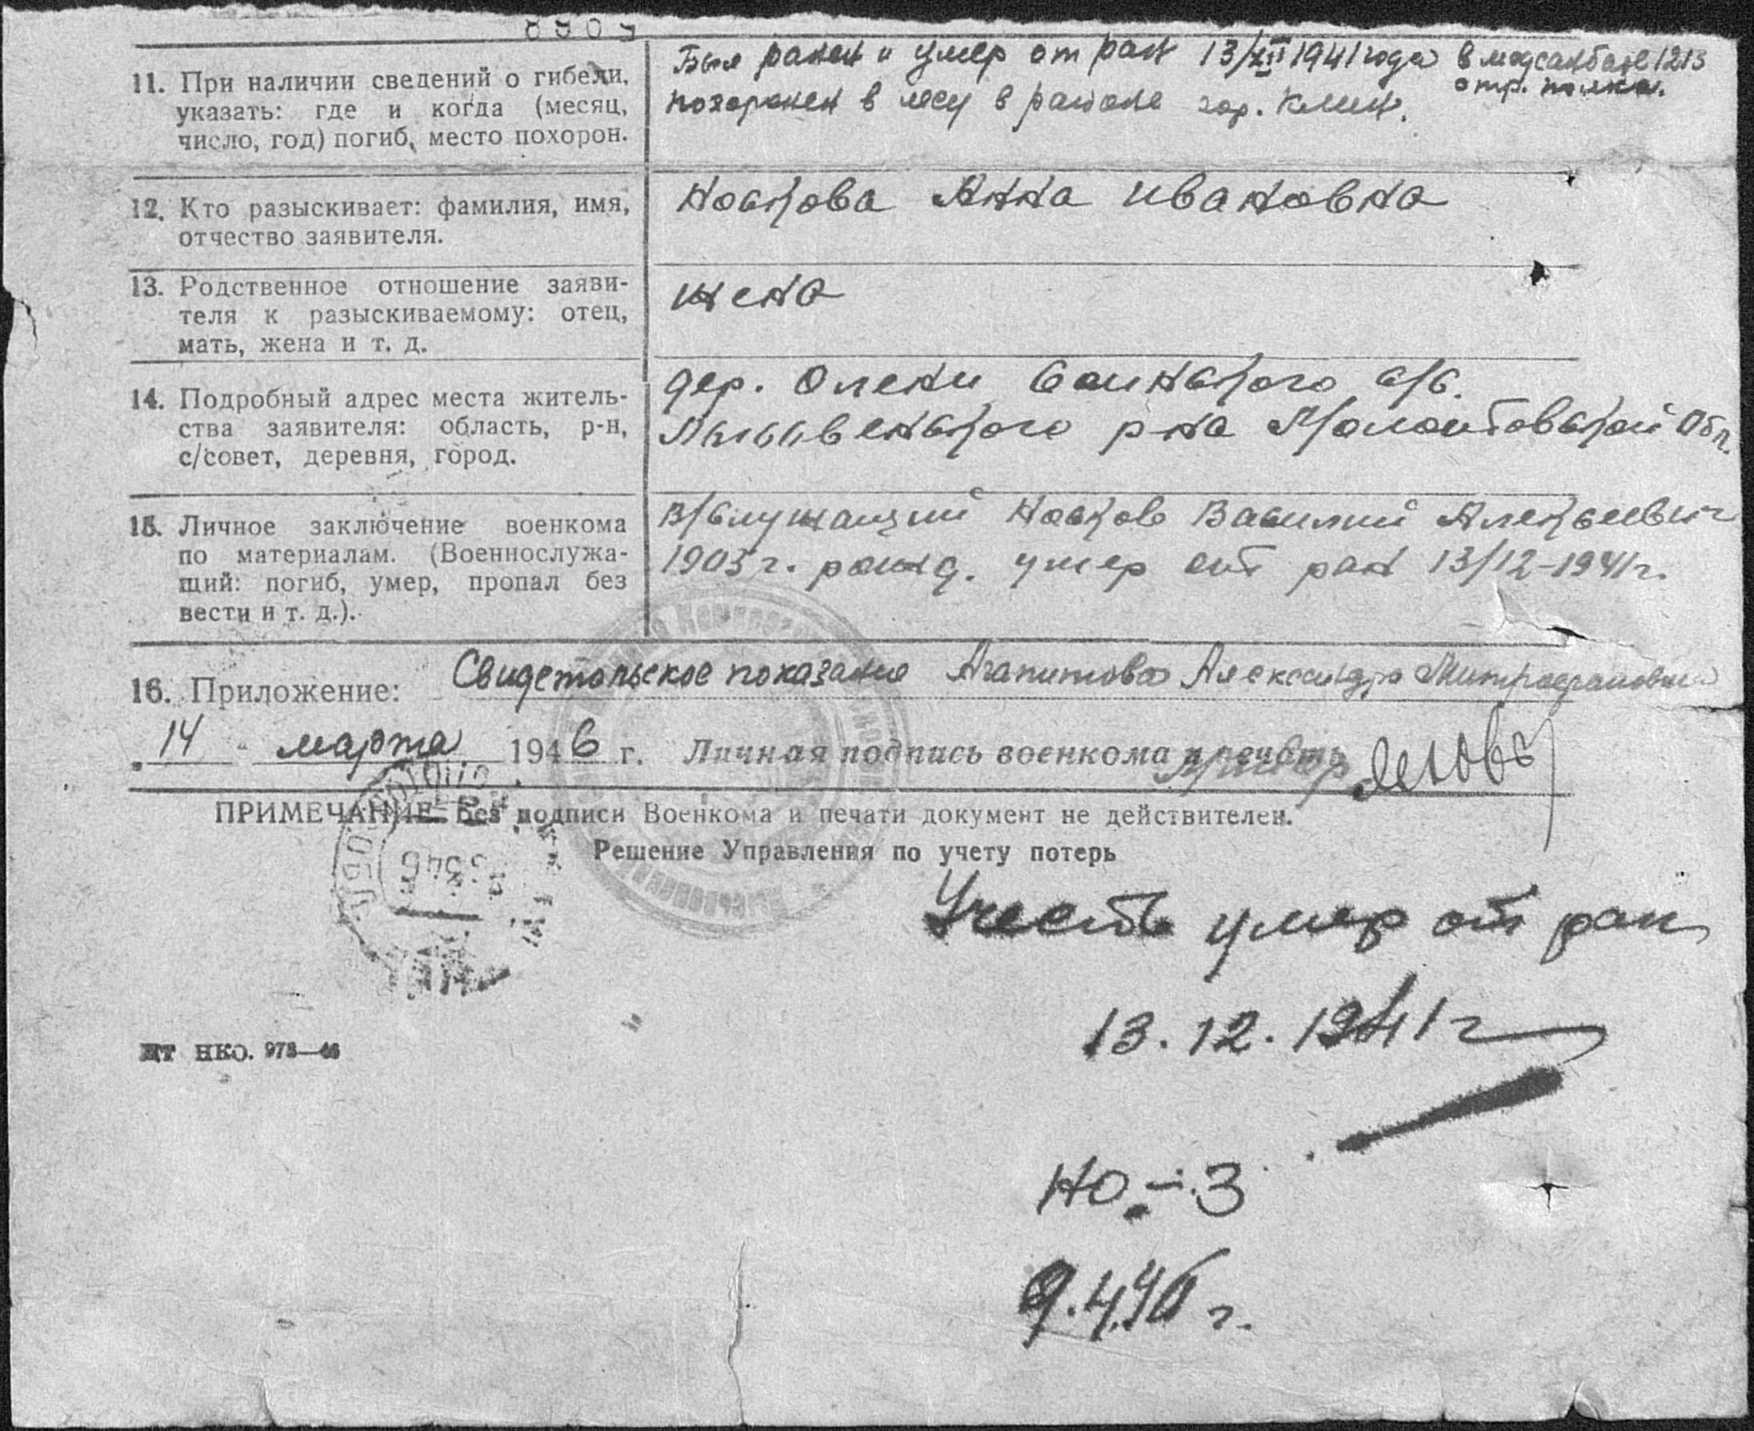 11. При наличии сведений о гибели, указать: где и когда (месяц, число, год) погиб, место похорон.
Был ранен и умер от ран 13/XII 1941 года в медсанбате 1213
стр. полка.
похоронен в лесу в районе гор. Клин.
12. Кто разыскивает: фамилия, имя,
отчество заявителя.
Носкова Анна Ивановна
13. Родственное отношение заяви-
теля к разыскиваемому: отец,
мать, жена и т. д.
жена
14. Подробный адрес места житель-
ства заявителя: область, р-н,
с/совет, деревня, город.
дер. Олени с/с.
Лысьвенского р-на Молотовской обл.
15. Личное заключение военкома
по материалам. (Военнослужа-
щий: погиб, умер, пропал без
вести и т. д.).
В/служащий Носков Василий Алексеевич
1903 г. рожд. умер от ран 13/12-1941 г.
16. Приложение: Свидетельское показание Агапитова Александра Митрофановича
14 марта 1946 г. Личная подпись военкома и печать
ПРИМЕЧАНИЕ. Без подписи Военкома и печати документ не действителен.
Решение Управления по учету потерь
Учесть умер от ран
13.12.1941 г
НО-3
9.4.46 г.
НКО. 973—46